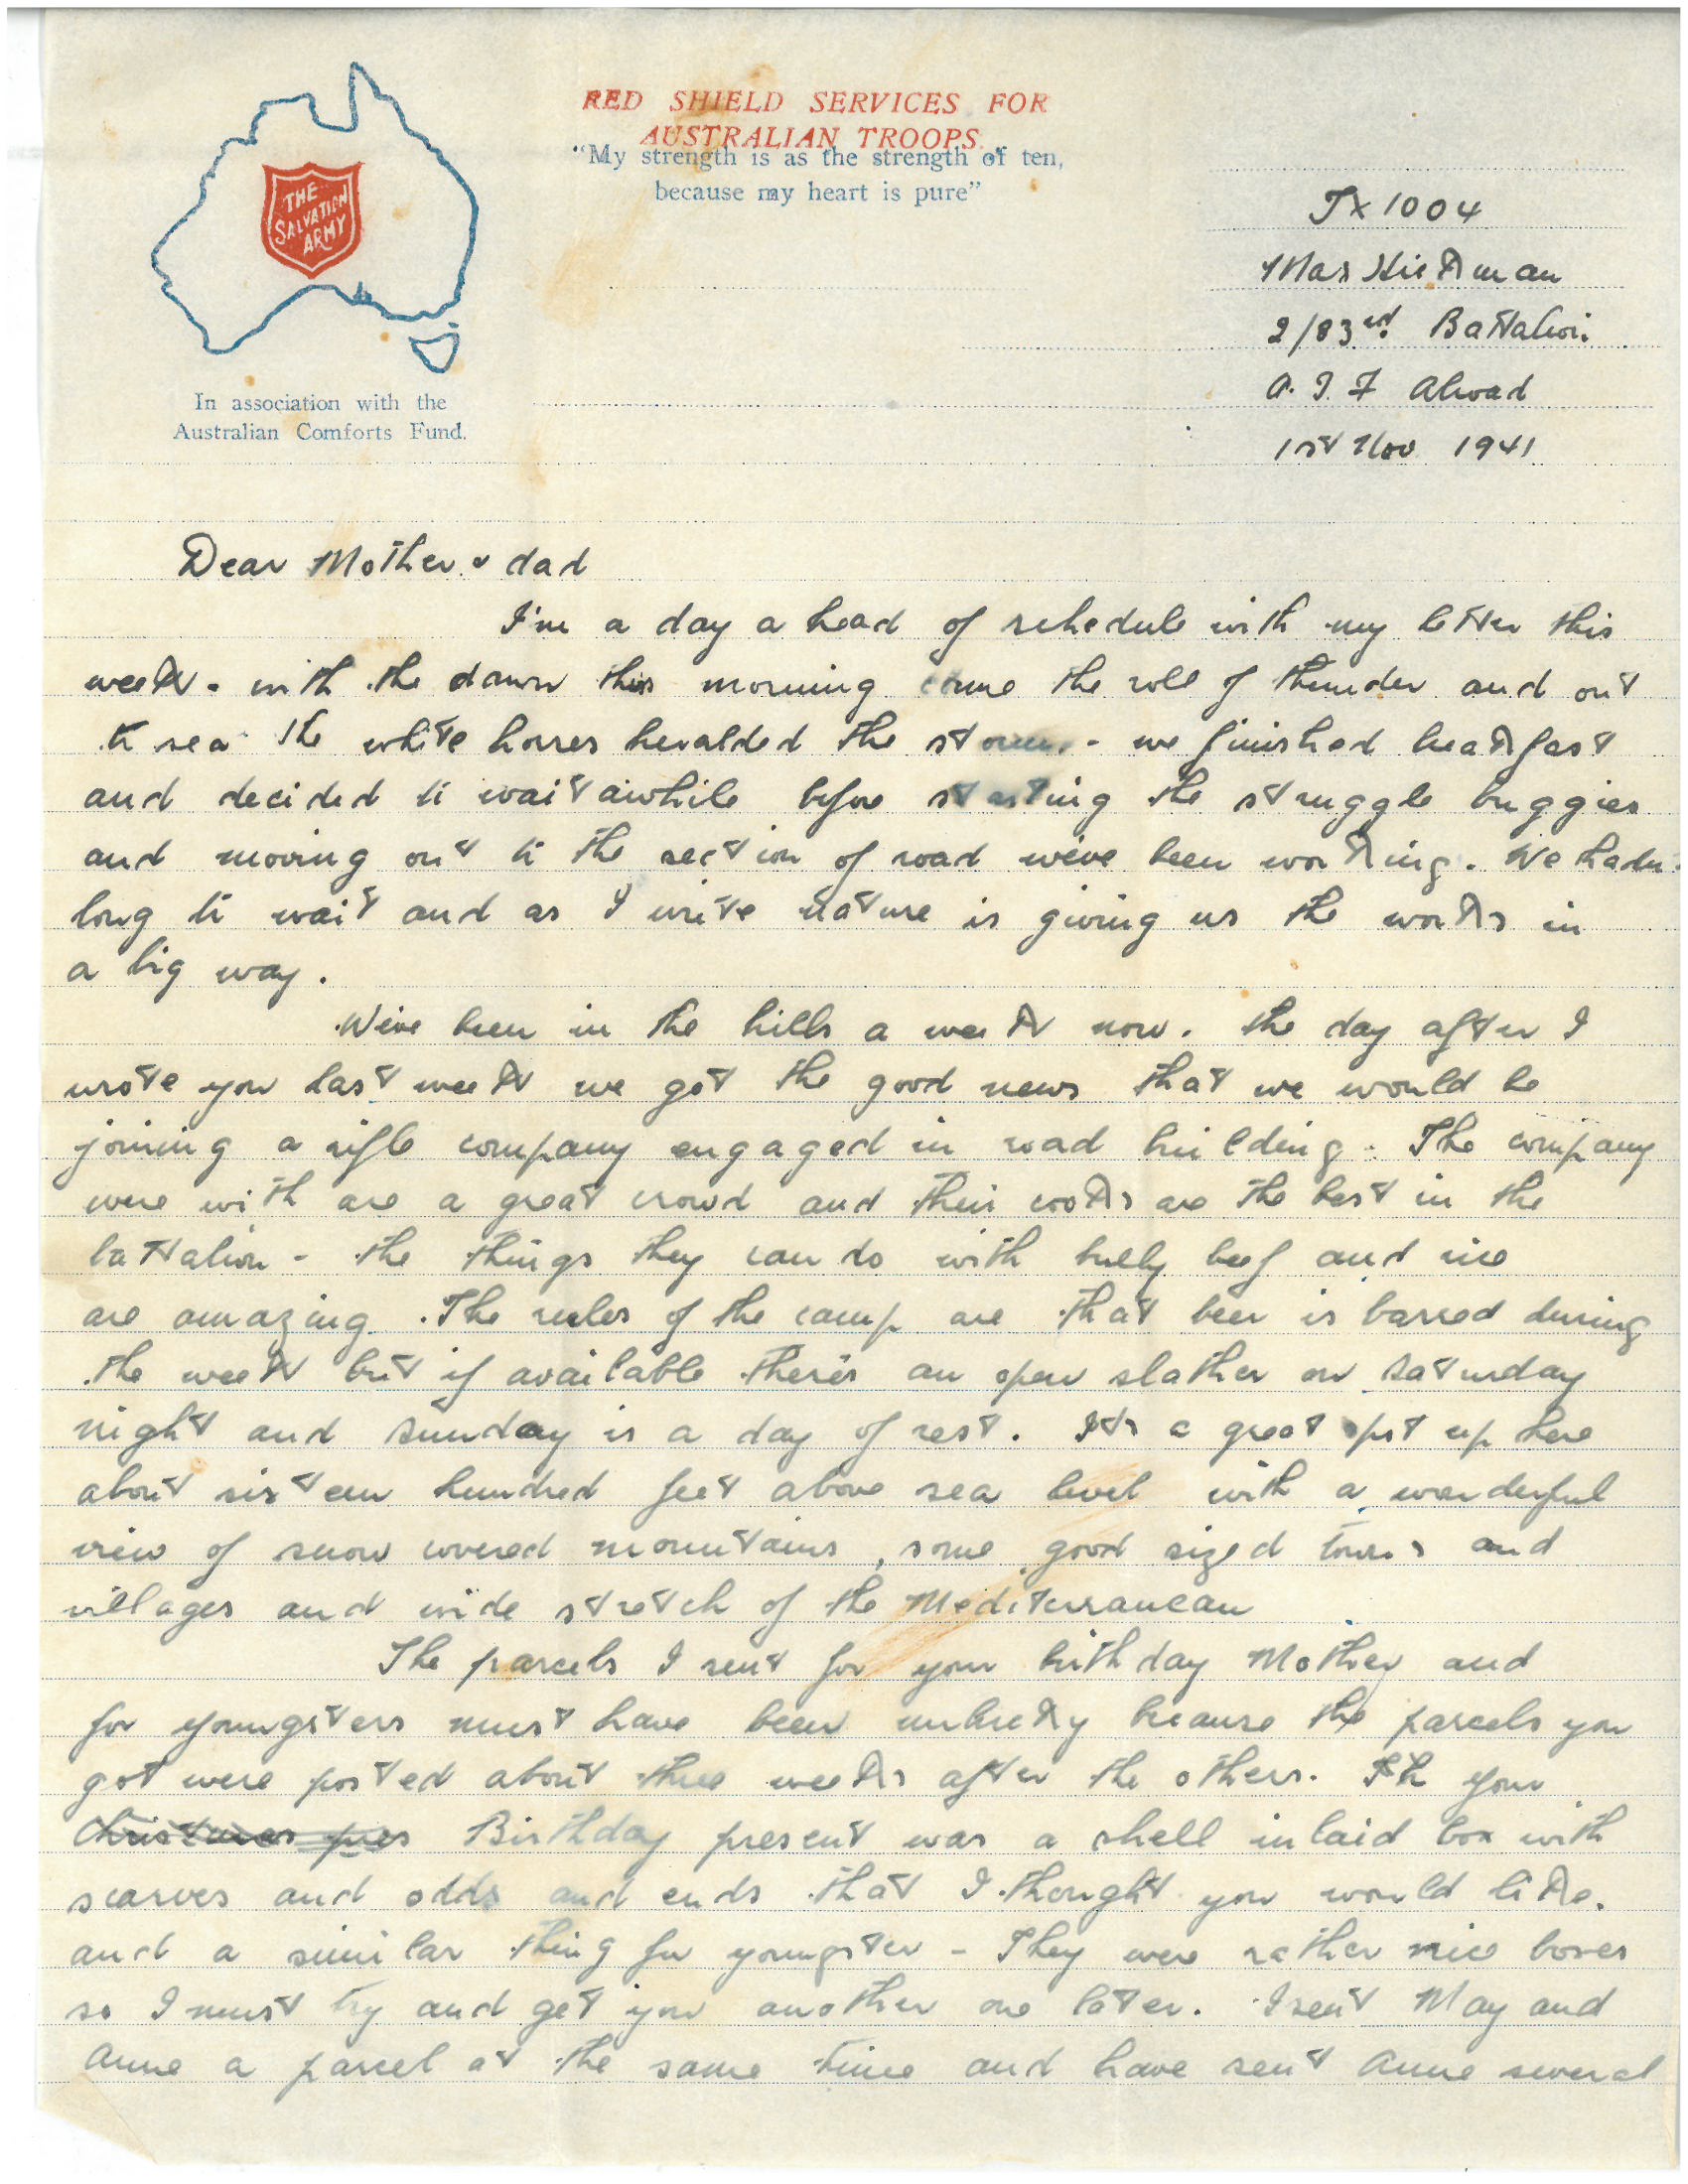 RED SHIELD SERVICES FOR
AUSTRALIAN TROOPS.
"My strength is as the strength of ten,
because my heart is pure"
THE
SALVATION
ARMY
In association with the
Australian Comforts Fund.
TX 1004
Max Hickman
Battalion
A.I.F Abroad
1st Nov 1941
Dear Mother & dad
I'm a day a head of schedule with my letter this
week. with the dawn this morning came the roll of thunder and out
to sea the white horses heralded the storm - we finished breakfast
and decided to wait awhile before starting the struggle buggies
and moving out to the section of road we've been working. We hadn
long to wait and as I write nature is giving us the works in
a big way.
We've been in the hills a week now. the day after I
wrote you last week we got the good news that we would be
joining a rifle company engaged in road building. The company
were with are a great crowd and their cooks are the best in the
battalion - the things they can do with bully beef and rice
are amazing. The rules of the camp are that beer is barred during
the week but if available there's an open slather on Saturday
night and Sunday is a day of rest. Its a great spot up here
about sixteen hundred feet above sea level with a wonderful
view of snow covered mountains, some good sized towns and
villages and wide stretch of the Mediterranean
The parcels I sent for your birthday Mother and
for youngsters must have been unlucky because the parcels you
got were posted about three weeks after the others. your
Christmas pres Birthday present was a shell inlaid box with
scarves and odds and ends that I thought you would like.
and a similar thing for youngster - They were rather nice boxes
so I must try and get you another one later. I sent May and
Anne a parcel at the same time and have sent Anne several